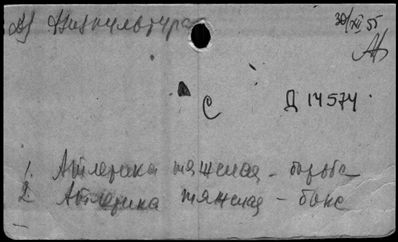 Физкультура 30/XII 55
С Д 14574
1. Атлетика тяжелая - борьба
2. Атлетика тяжелая - бокс